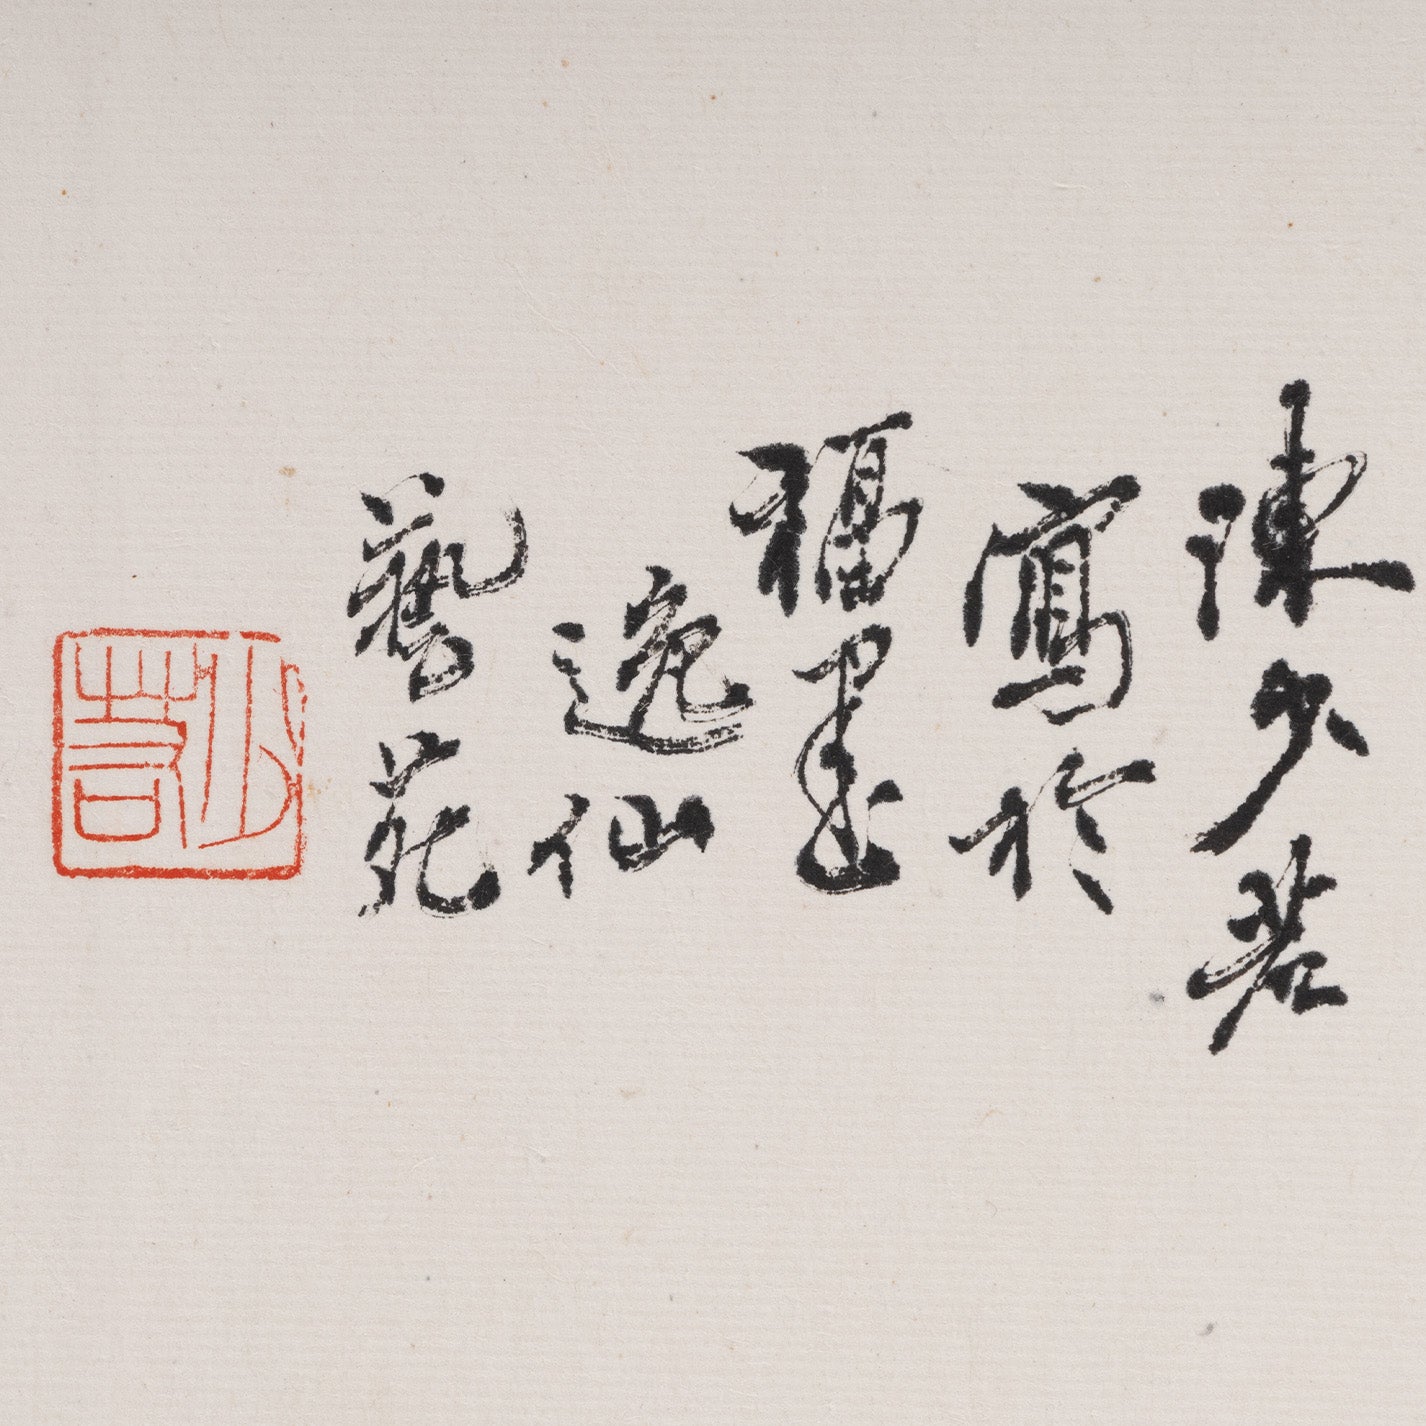 陳少若
寫於
福墨
逸仙
藝苑
少若